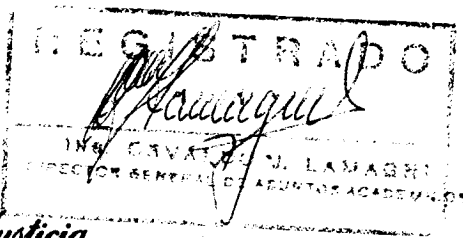 REGISTRADO
Lamagni
ING. OSVALDO J. LAMAGNI
DIRECTOR GENERAL DE ASUNTOS ACADEMICOS
usticia